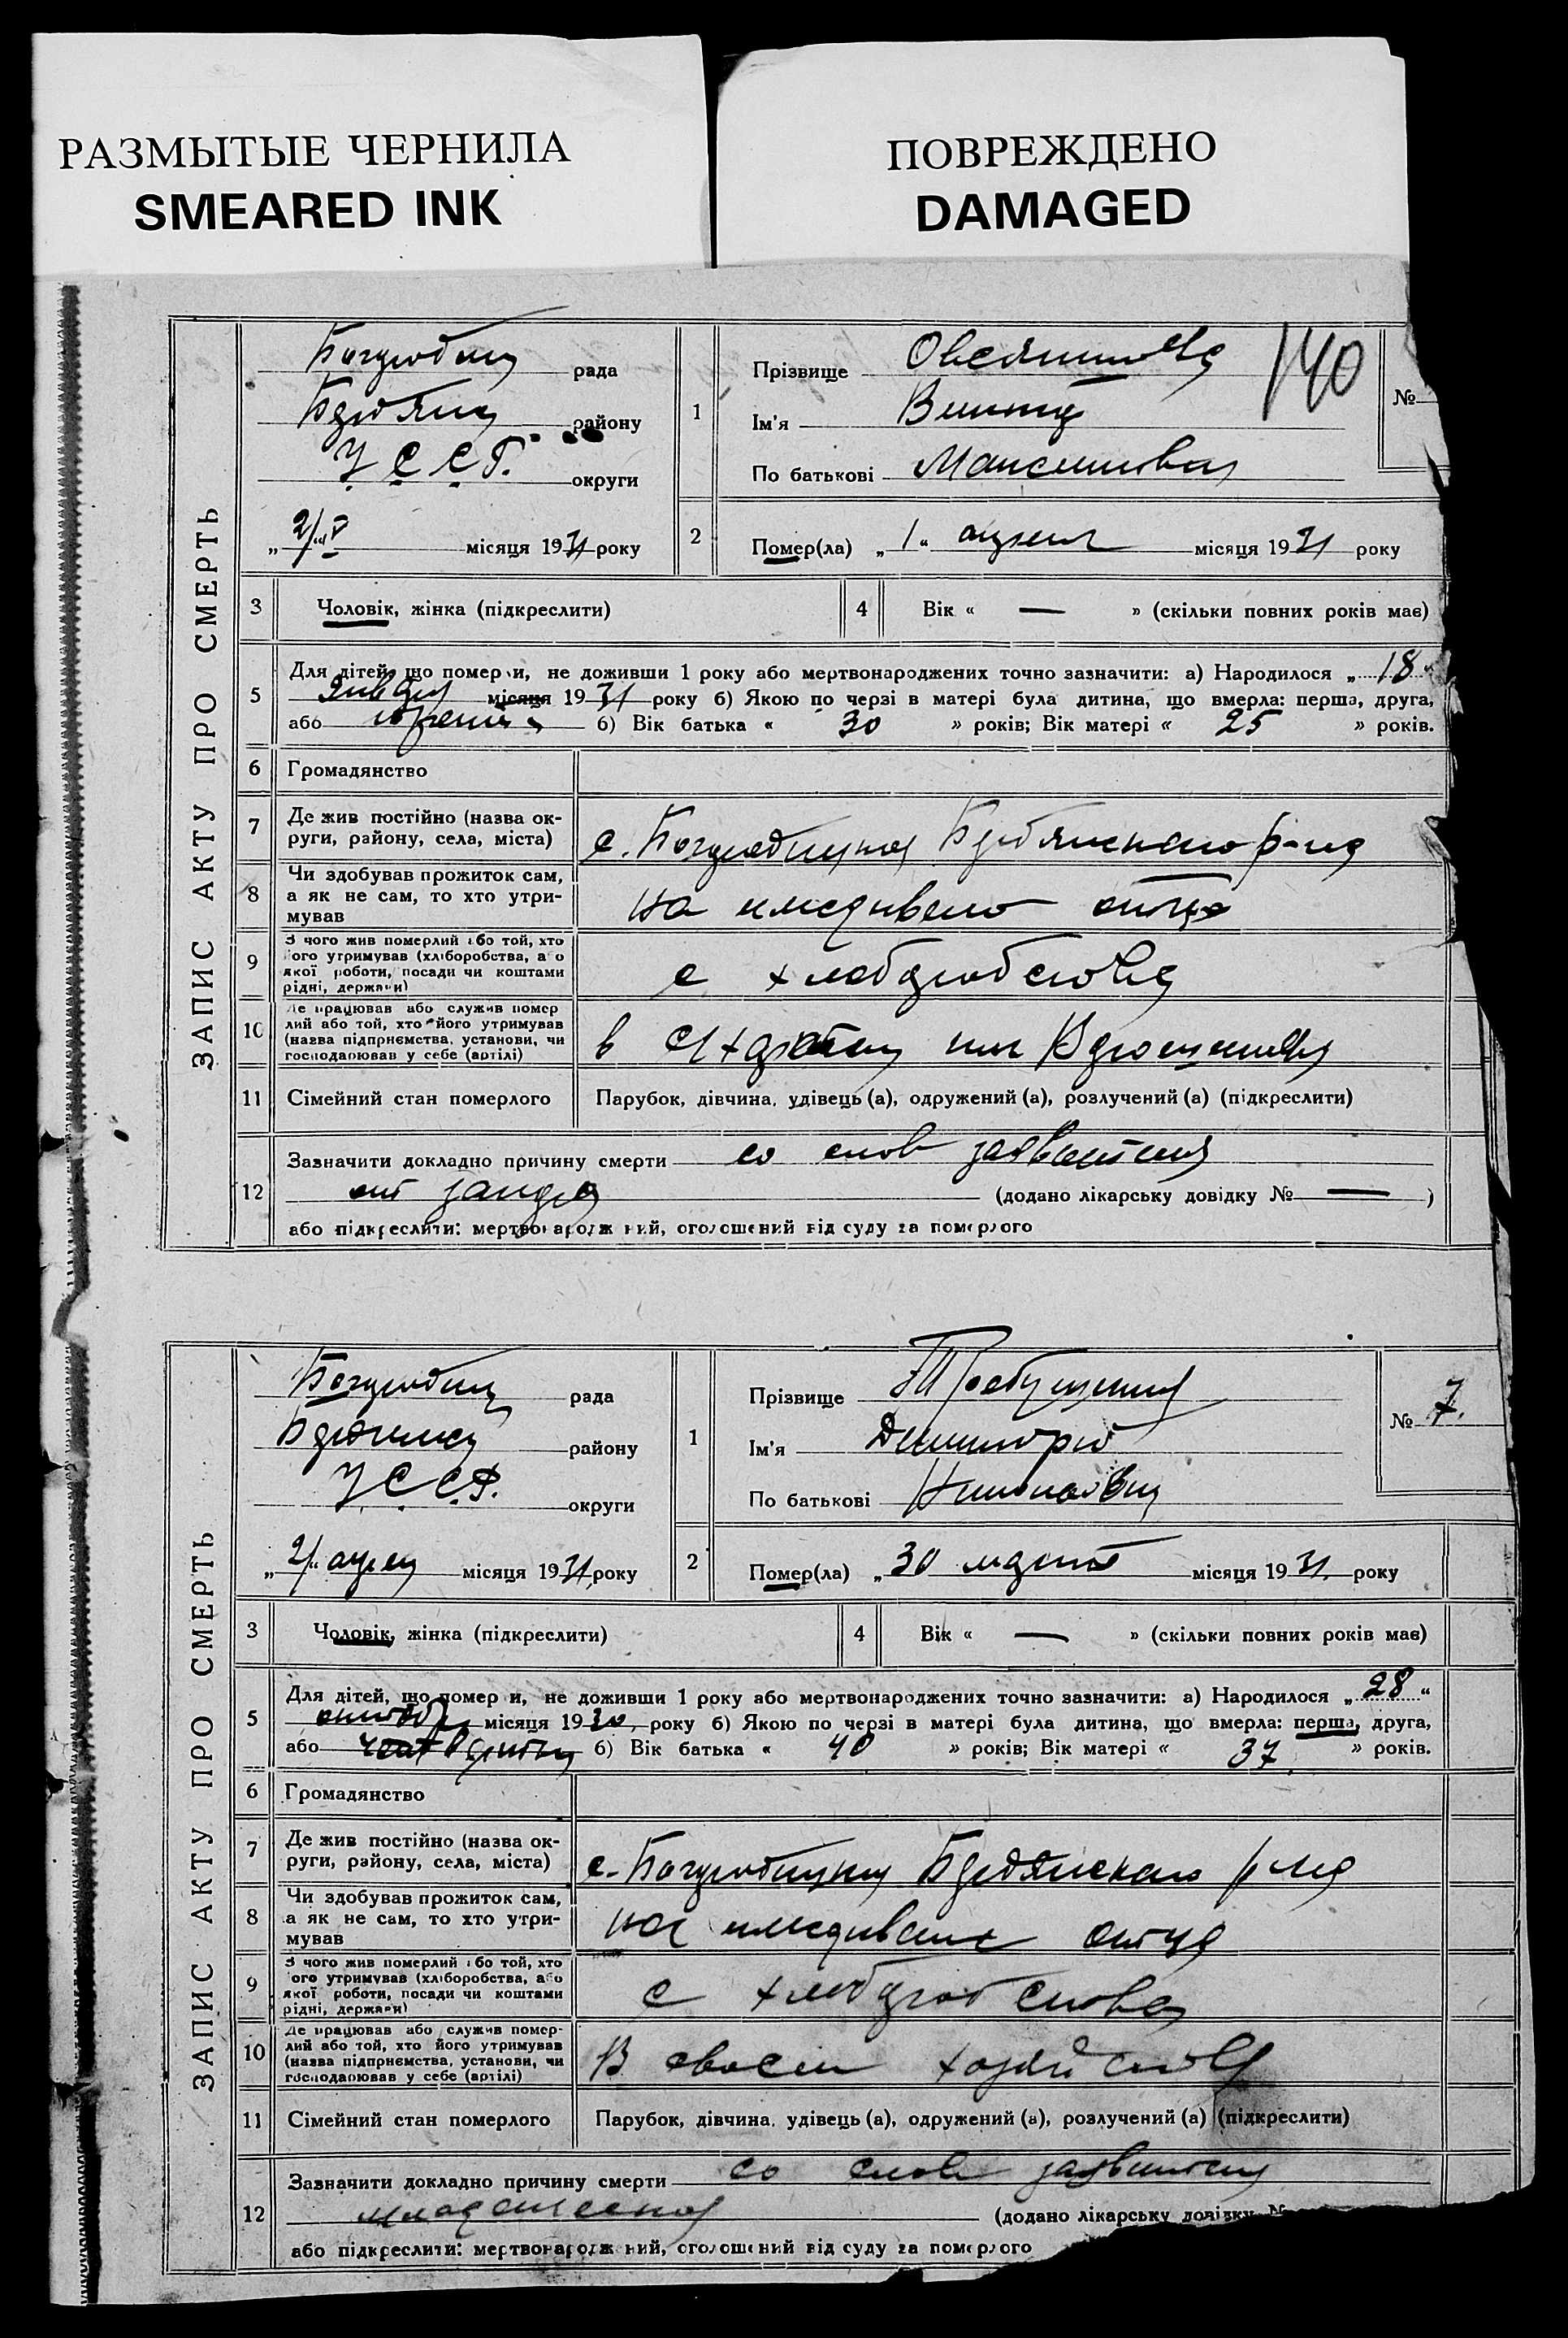 РАЗМЫТЫЕ ЧЕРНИЛА
SMEARED INK
ПОВРЕЖДЕНО
DAMAGED
ЗАПИС АКТУ ПРО СМЕРТЬ
рада
району
У.С.С.Р. округи
місяця 1931 року
1
Прізвище
140
Ім'я
По батькові
№
2
Помер(ла) „1“ апреля місяця 1931 року
3 Чоловік, жінка (підкреслити)
4 Вік « — » (скільки повних років має)
5 Для дітей, що померли, не доживши 1 року або мертвонароджених точно зазначити: а) Народилося „18“
января місяця 1931 року б) Якою по черзі в матері була дитина, що вмерла: перша, друга,
або б) Вік батька « 30 » років; Вік матері « 25 » років.
6 Громадянство
7 Де жив постійно (назва округи, району, села, міста)
8 Чи здобував прожиток сам, а як не сам, то хто утримував
на иждивении отца
9 З чого жив померлий або той, хто його утримував (хліборобства, або якої роботи, посади чи коштами рідні, держави)
с хлебороб ства
10 Де працював або служив померлий або той, хто його утримував (назва підприємства, установи, чи господарював у себе (артілі)
11 Сімейний стан померлого
Парубок, дівчина, удівець (а), одружений (а), розлучений (а) (підкреслити)
12 Зазначити докладно причину смерти со слов заявителя
от (додано лікарську довідку № — )
або підкреслити: мертвонароджений, оголошений від суду за померлого
ЗАПИС АКТУ ПРО СМЕРТЬ
рада
району
У.С.С.Р. округи
2/ апреля місяця 1931 року
1
Прізвище
Ім'я Дмитрий
По батькові
№ 7.
2
Помер(ла) „30 марта місяця 1931. року
3 Чоловік, жінка (підкреслити)
4 Вік « — » (скільки повних років має)
5 Для дітей, що померли, не доживши 1 року або мертвонароджених точно зазначити: а) Народилося „28“
октября місяця 1930 року б) Якою по черзі в матері була дитина, що вмерла: перша, друга,
або б) Вік батька « 40 » років; Вік матері « 37 » років.
6 Громадянство
7 Де жив постійно (назва округи, району, села, міста)
8 Чи здобував прожиток сам, а як не сам, то хто утримував
на иждивении отца
9 З чого жив померлий або той, хто його утримував (хліборобства, або якої роботи, посади чи коштами рідні, держави)
с хлебороб ства
10 Де працював або служив померлий або той, хто його утримував (назва підприємства, установи, чи господарював у себе (артілі)
В своем хозяйстве
11 Сімейний стан померлого
Парубок, дівчина, удівець (а), одружений (а), розлучений (а) (підкреслити)
12 Зазначити докладно причину смерти со слов заявителя
(додано лікарську довідку №
або підкреслити: мертвонароджений, оголошений від суду за померлого